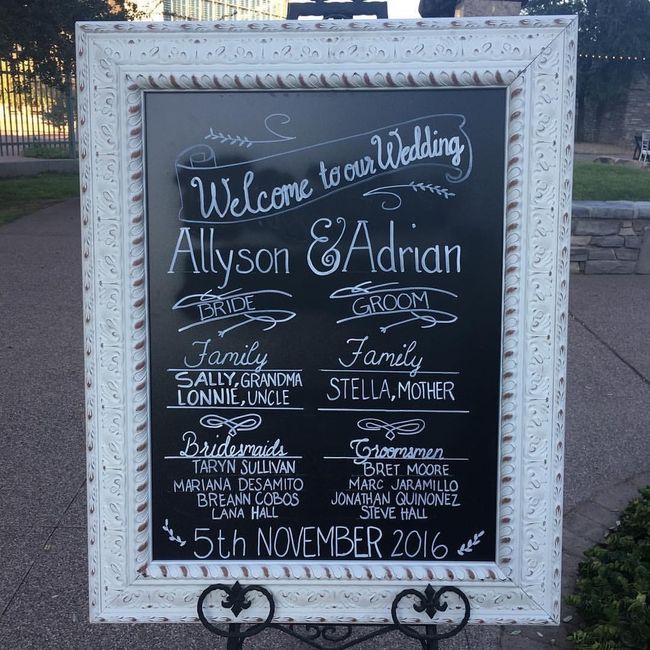 Welcome to our Wedding
Allyson & Adrian
BRIDE
GROOM
Family
SALLY, GRANDMA
LONNIE, UNCLE
Family
STELLA, MOTHER
Bridesmaids
TARYN SULLIVAN
MARIANA DESAMITO
BREANN COBOS
LANA HALL
Groomsmen
BRET MOORE
MARC JARAMILLO
JONATHAN QUINONEZ
STEVE HALL
5th NOVEMBER 2016